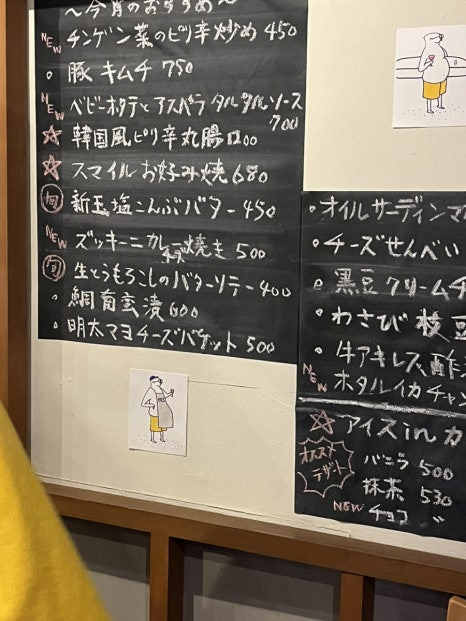 〜今宵のおすすめ〜
NEW チンゲン菜のピリ辛炒め 450
。豚キムチ 750
NEW ベビーホタテとアスパラ タルタルソース 700
☆ 韓国風ピリ辛丸腸 1200
☆ スマイルお好み焼 680
旬 新玉塩こんぶバター 450
NEW ズッキーニカレーチーズ焼き 500
旬 生とうもろこしのバターソテー 400
・鯛 蛮漬 600
・明太マヨチーズバゲット 500
・オイルサーディン
・チーズせんべい
。黒豆クリームチ
・わさび枝豆
・牛アキレス酢
NEW ホタルイカチャン
☆ アイスin
オススメデザート
バニラ 500
抹茶 530
NEW チョコ 〃